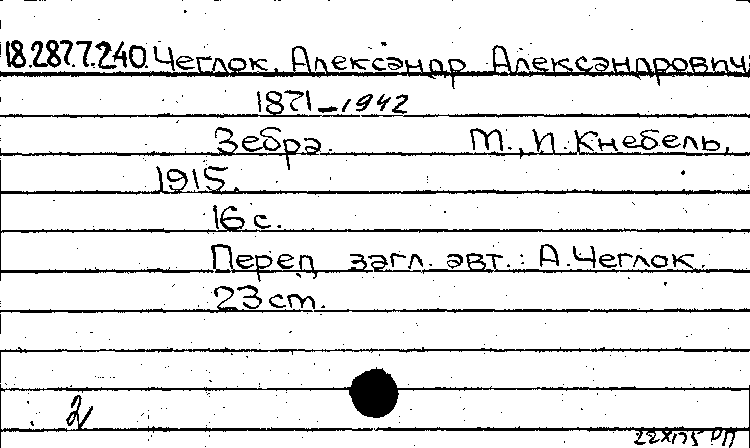 18.287.7.240. Чеглок, Александр Александрович
1871-1942
Зебра. М., И. Кнебель,
1915.
16 с.
Перед загл. авт.: А. Чеглок.
23 ст.
2